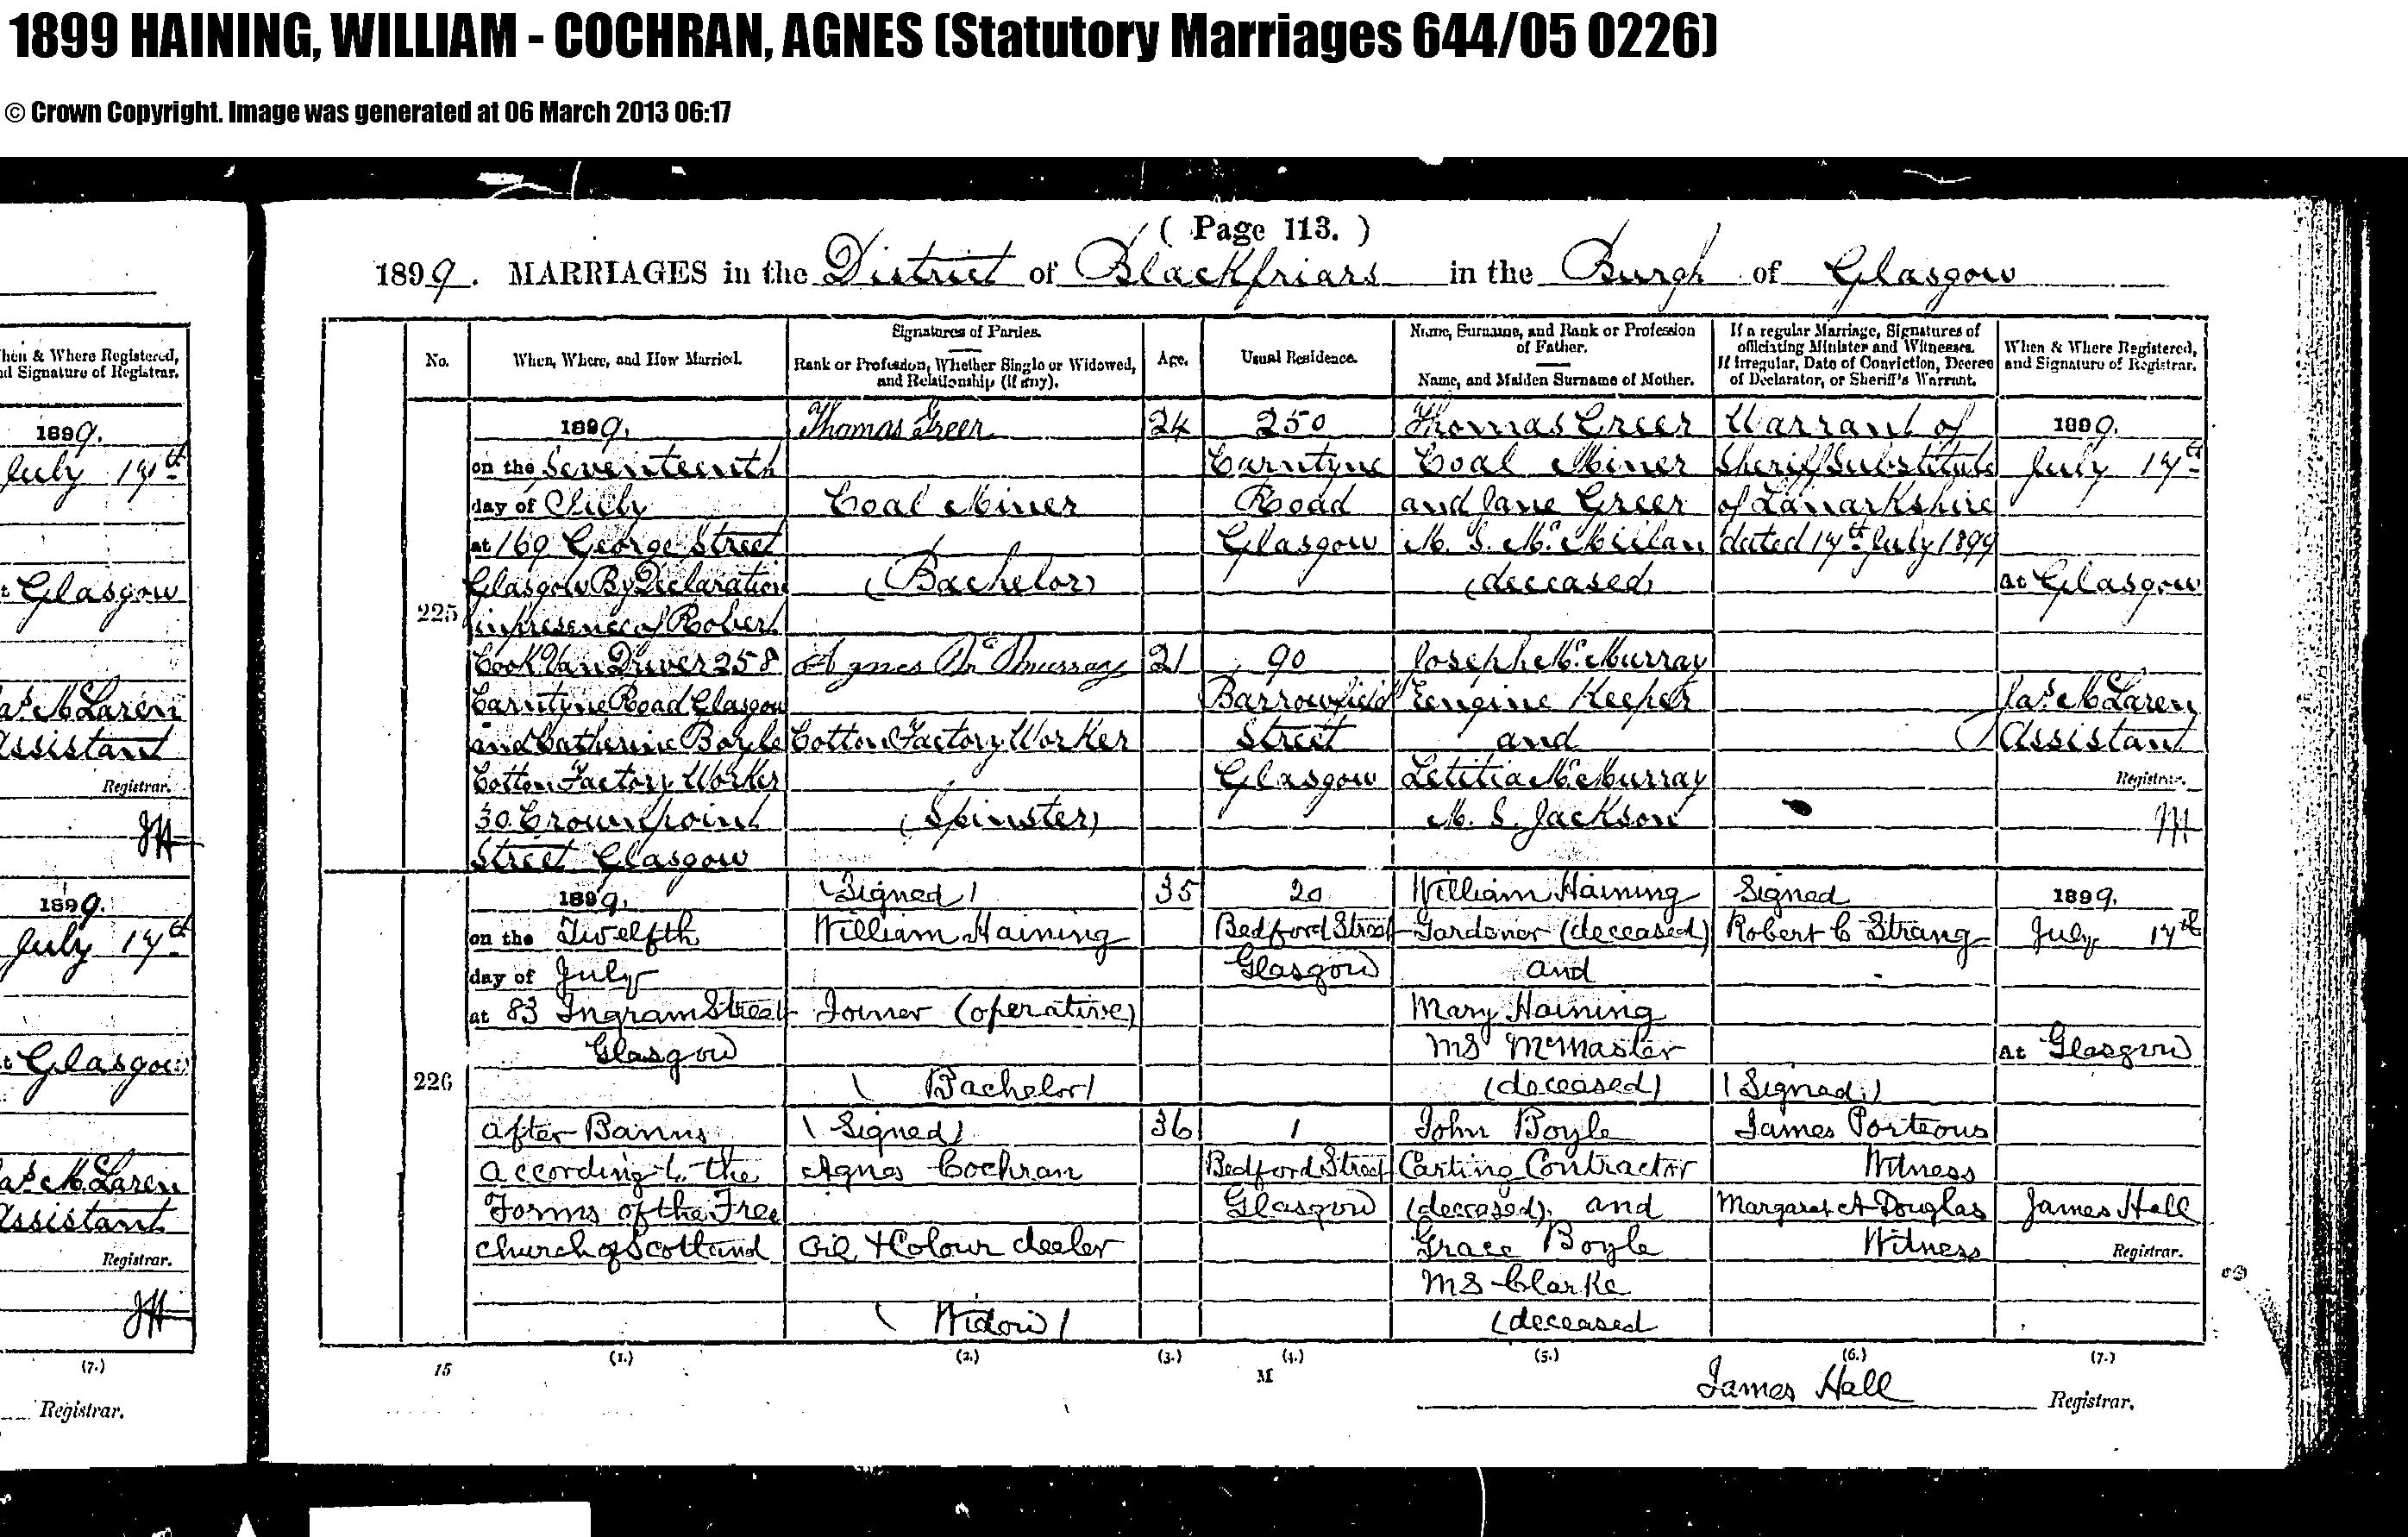 1899 HAINING, WILLIAM - COCHRAN, AGNES (Statutory Marriages 644/05 0226)
© Crown Copyright. Image was generated at 06 March 2013 06:17
( Page 113. )
1899. MARRIAGES in the District of Blackfriars in the Burgh of Glasgow
When & Where Registered,
and Signature of Registrar.
1899.
July 17th
at Glasgow
Jas McLaren
Assistant
Registrar.
JH
1899.
July 17th
at Glasgow
Jas McLaren
Assistant
Registrar.
JH
(7.)
Registrar.
No.
When, Where, and How Married.
Signatures of Parties.
Rank or Profession, Whether Single or Widowed,
and Relationship (if any).
Age.
Usual Residence.
Name, Surname, and Rank or Profession
of Father.
Name, and Maiden Surname of Mother.
If a regular Marriage, Signatures of
officiating Minister and Witnesses.
If irregular, Date of Conviction, Decree
of Declarator, or Sheriff's Warrant.
When & Where Registered,
and Signature of Registrar.
225
1899.
on the Seventeenth
day of July
at 169 George Street
Glasgow By Declaration
in presence of Robert
Cook Van Driver 258
Carntyne Road Glasgow
and Catherine Boyle
Cotton Factory Worker
30 Crownpoint
Street Glasgow
Thomas Greer
Coal Miner
(Bachelor)
Agnes McMurray
Cotton Factory Worker
(Spinster)
24
21
250
Carntyne
Road
Glasgow
90
Barrowfield
Street
Glasgow
Thomas Greer
Coal Miner
and Jane Greer
M. S. McMillan
(deceased)
Joseph McMurray
Eengine Keeper
and
Letitia McMurray
M. S. Jackson
Warrant of
Sheriff Substitute
of Lanarkshire
dated 17th July 1899
1899.
July 17th
At Glasgow
Jas McLaren
Assistant
Registrar.
JH
226
1899.
on the Twelfth
day of July
at 83 Ingram Street
Glasgow
After Banns
according to the
Forms of the Free
Church of Scotland
(Signed)
William Haining
Joiner (operative)
(Bachelor)
(Signed)
Agnes Cochran
Oil & Colour dealer
(Widow)
35
36
20
Bedford Street
Glasgow
1
Bedford Street
Glasgow
William Haining
Gardener (deceased)
and
Mary Haining
MS McMaster
(deceased)
John Boyle
Carting Contractor
(deceased) and
Grace Boyle
MS Clarke
(deceased
Signed
Robert C Strang
(Signed)
James Porteous
Witness
Margaret A Douglas
Witness
1899.
July 17th
At Glasgow
James Hall
Registrar.
(1.) (2.) (3.) (4.) (5.) (6.) (7.)
15
M
James Hall Registrar.